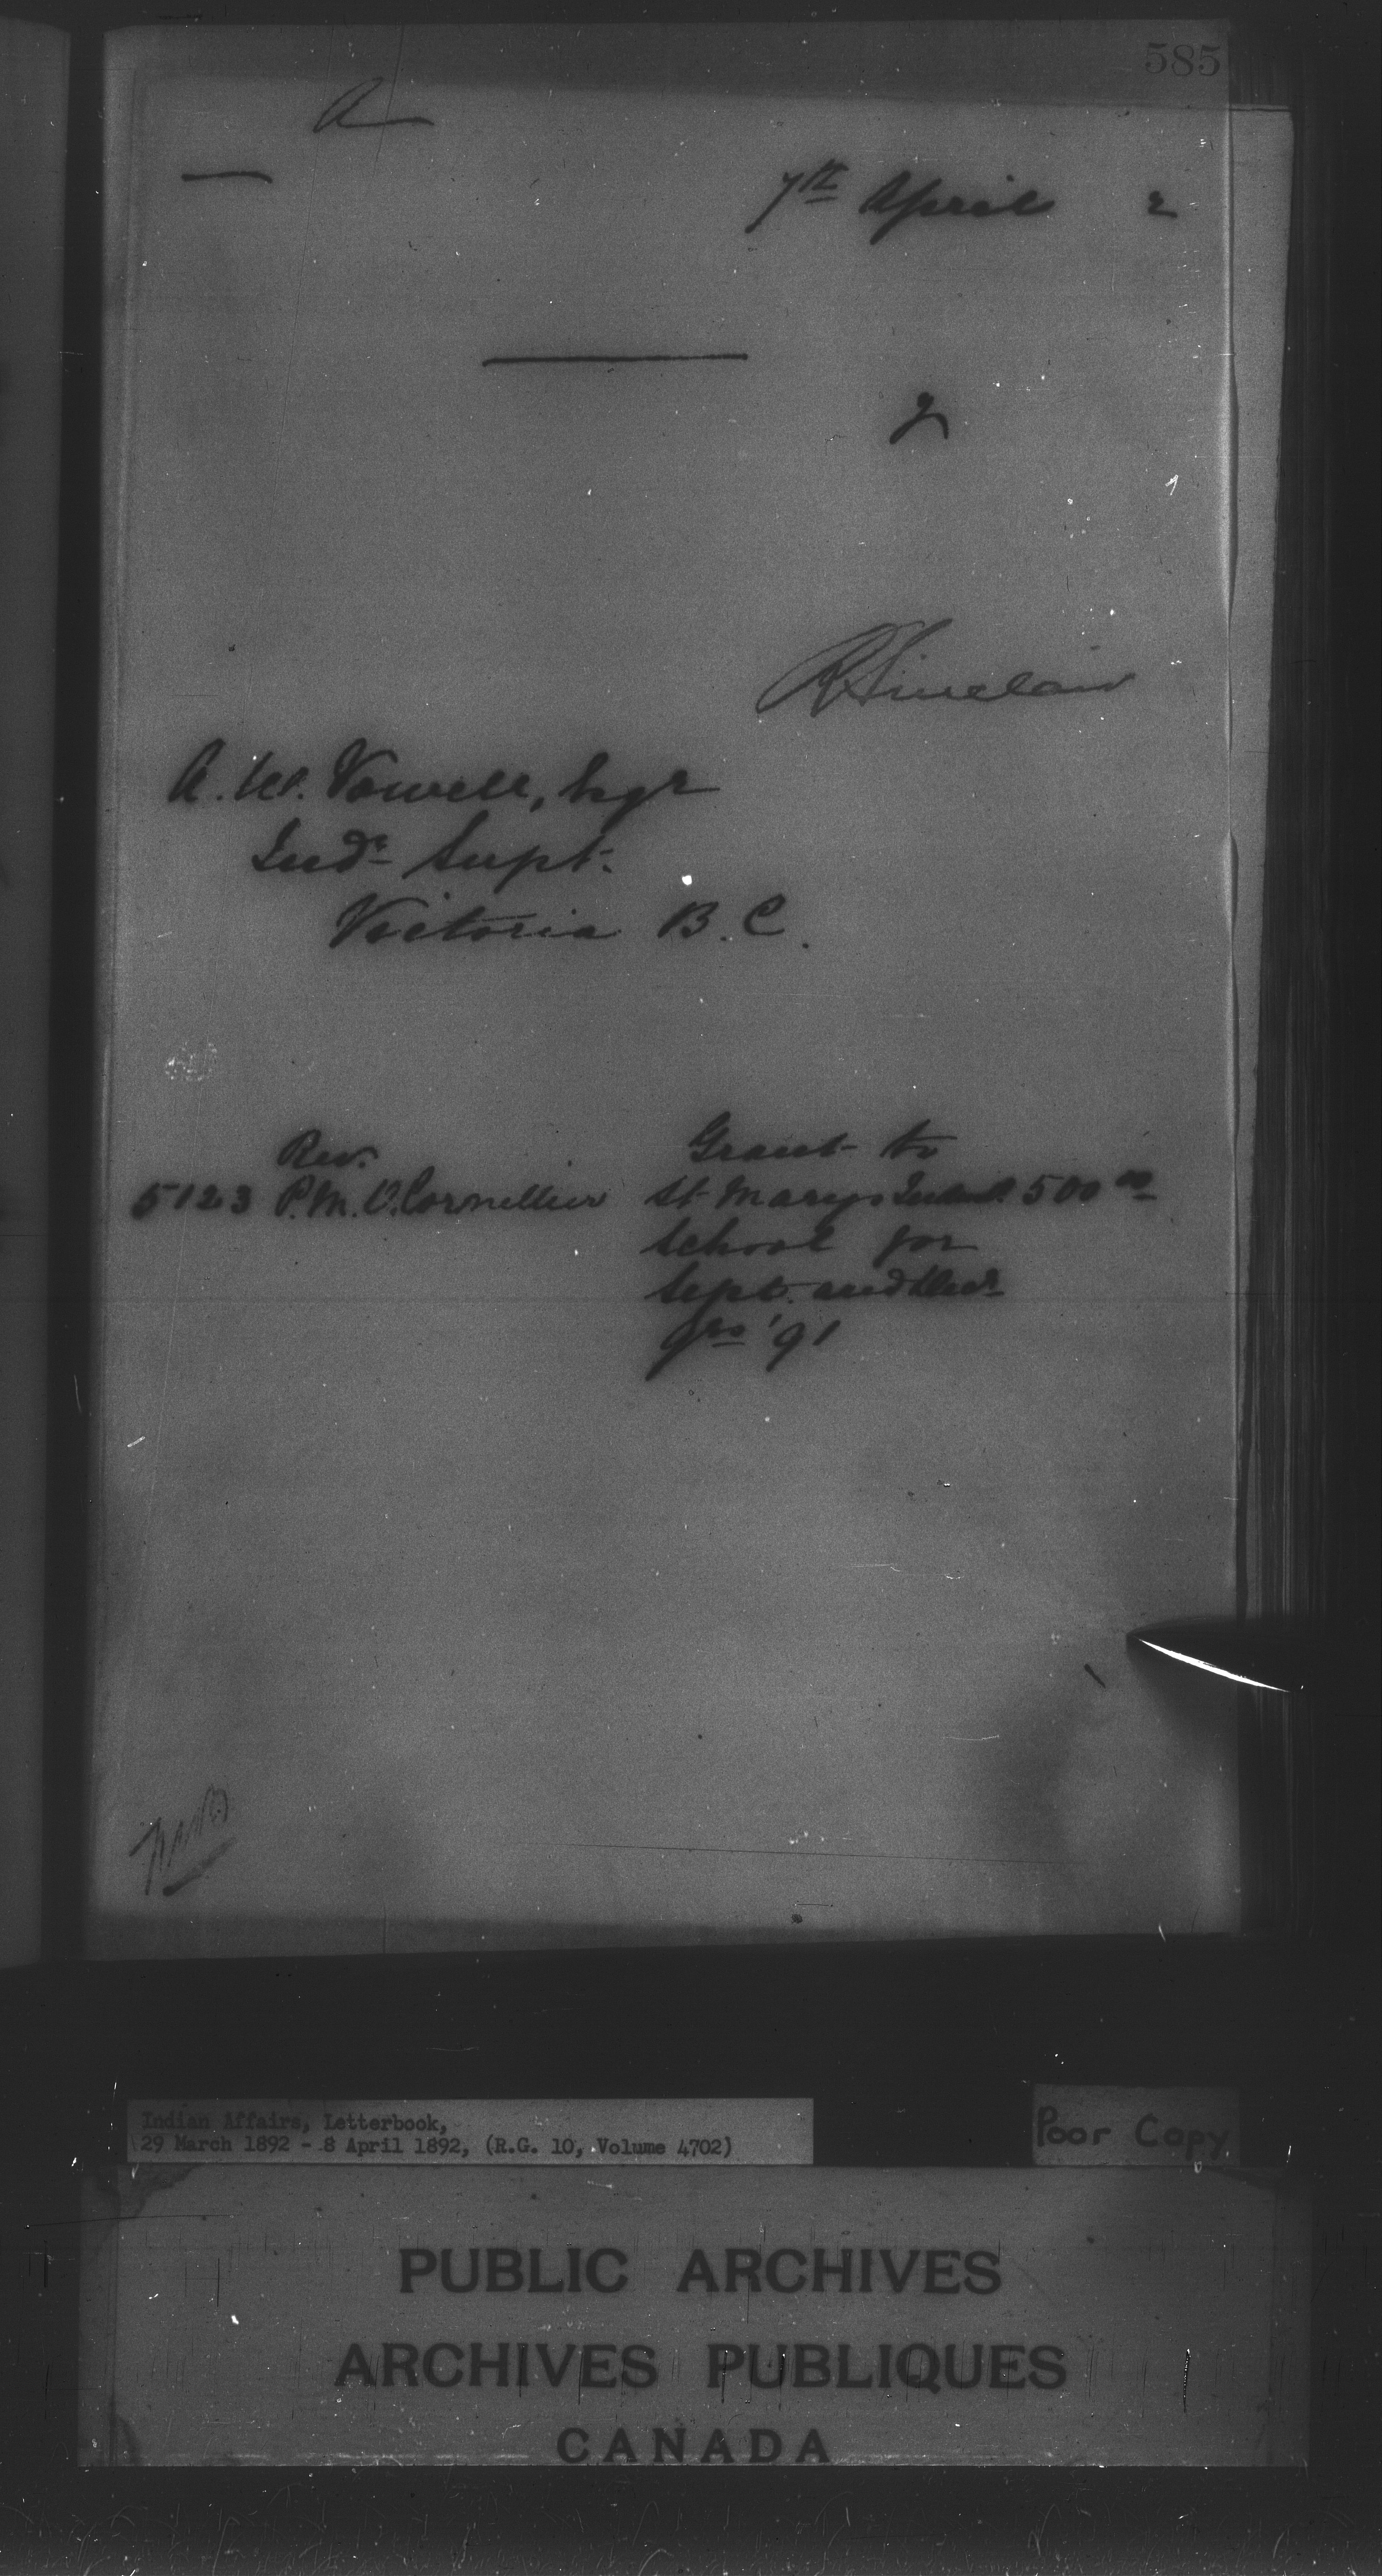 585
A
7th April 2
R Sinclair
A. W. Vowell, Esqr
Indn Supt.
Victoria B.C.
Rev. Grant to
5123 P.M.O. Cornellier St Marys Indusl. 500 00
School for
Sept. and Decr
qrs '91
Indian Affairs, Letterbook,
29 March 1892 - 8 April 1892, (R.G. 10, Volume 4702)
Poor Copy
PUBLIC ARCHIVES
ARCHIVES PUBLIQUES
CANADA